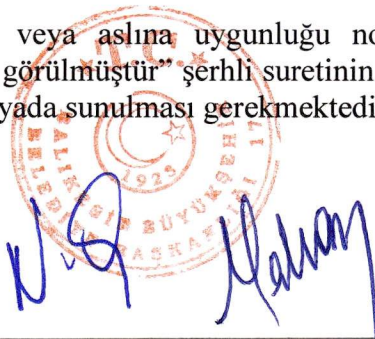 veya aslına uygunluğu no
görülmüştür” şerhli suretinin
yada sunulması gerekmektedi
T.C.
BALIKESİR BÜYÜKŞEHİR
BELEDİYE BAŞKANLIĞI
1923